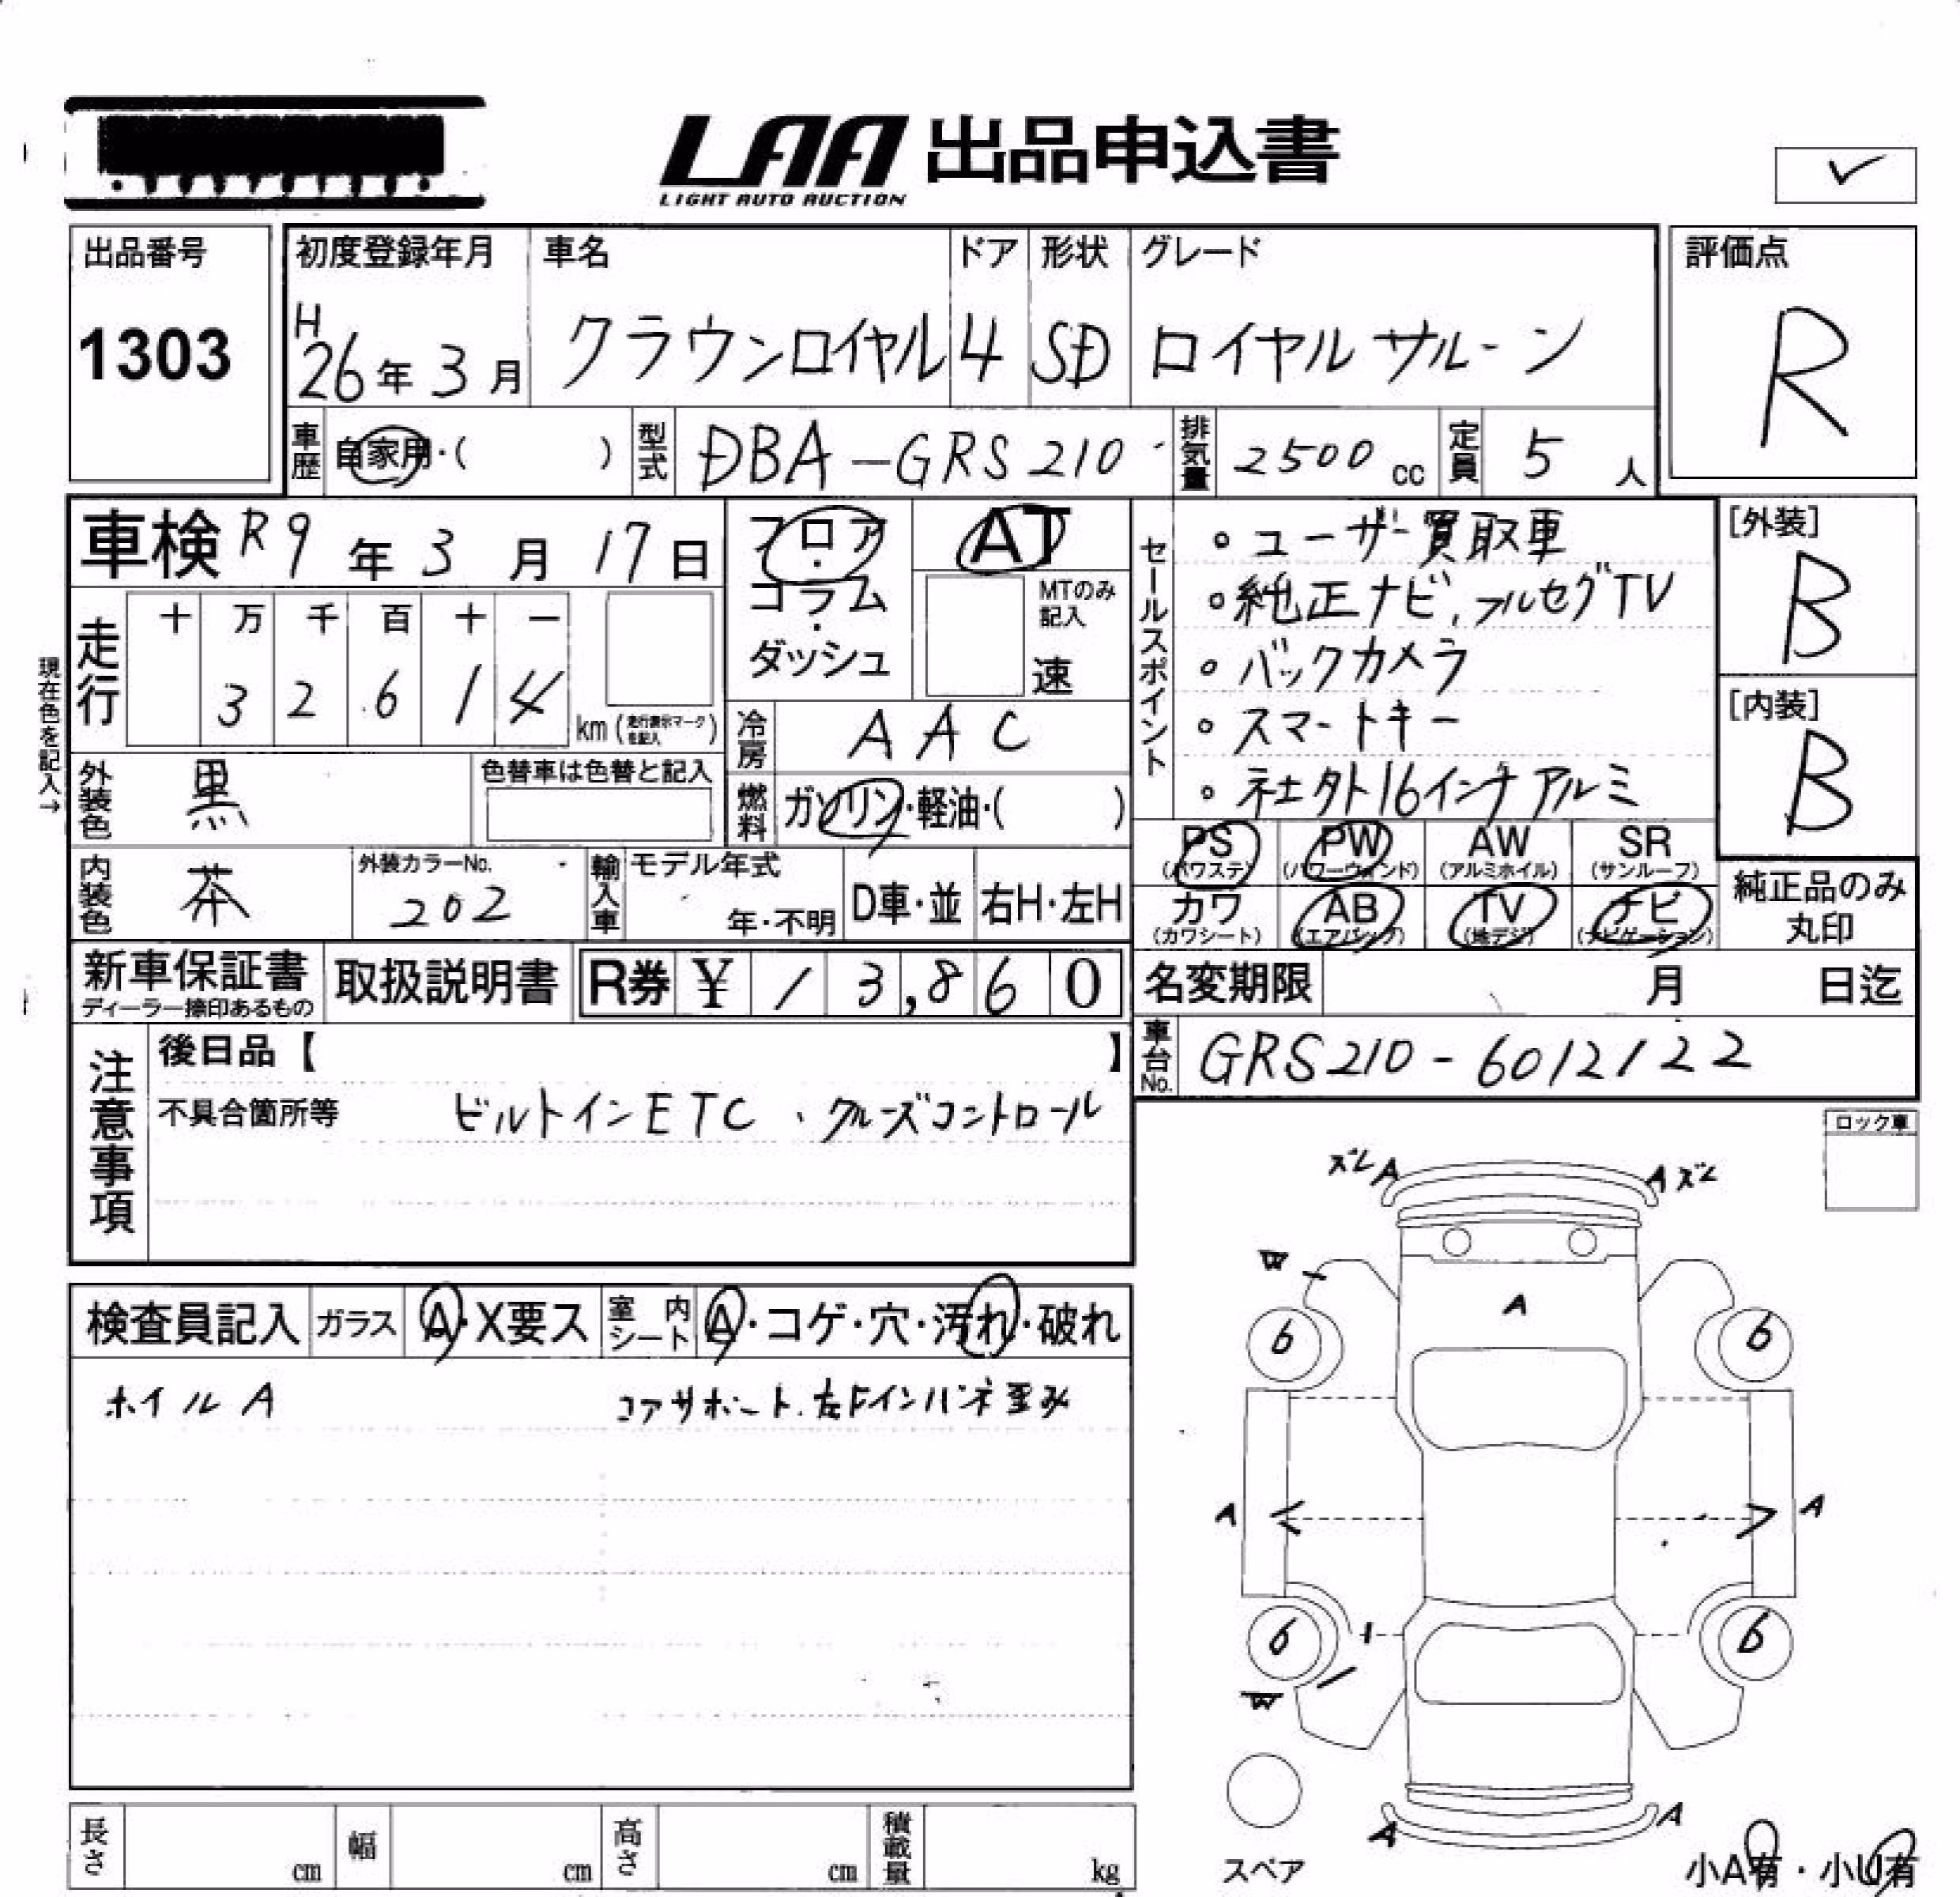 LAA 出品申込書
LIGHT AUTO AUCTION
✓
出品番号
1303
初度登録年月
H26年3月
車名
クラウンロイヤル
ドア
4
形状
SD
グレード
ロイヤルサルーン
評価点
R
車歴 自家用・( )
型式 DBA-GRS210
排気量 2500cc
定員 5人
車検 R9年3月17日
フロア・コラム・ダッシュ
AT
MTのみ記入
速
走行
十 万 千 百 十 一
3 2 6 1 4
km (走行表示マークを記入)
現在色を記入→
冷房 AAC
外装色 黒
色替車は色替と記入
燃料 ガソリン・軽油・( )
内装色 茶
外装カラーNo.
202
輸入車
モデル年式
年・不明
D車・並
右H・左H
セールスポイント
。ユーザー買取車
。純正ナビ、フルセグTV
。バックカメラ
。スマートキー
。社外16インチアルミ
[外装]
B
[内装]
B
PS (パワステ)
PW (パワーウィンド)
AW (アルミホイル)
SR (サンルーフ)
カワ (カワシート)
AB (エアバック)
TV (地デジ)
ナビ (ナビゲーション)
純正品のみ丸印
新車保証書
ディーラー捺印あるもの
取扱説明書
R券 ¥13,860
名変期限 月 日迄
車台No. GRS210-6012122
注意事項
後日品【 】
不具合箇所等 ビルトインETC、クルーズコントロール
ロック車
検査員記入
ガラス A・X要ス
室内シート A・コゲ・穴・汚れ・破れ
ホイルA
コアサポート、左Fインパネ歪み
ズレ A
A ズレ
W
A
6
6
A
A
6
6
W
A
A
スペア
小A有・小U有
長さ cm
幅 cm
高さ cm
積載量 kg